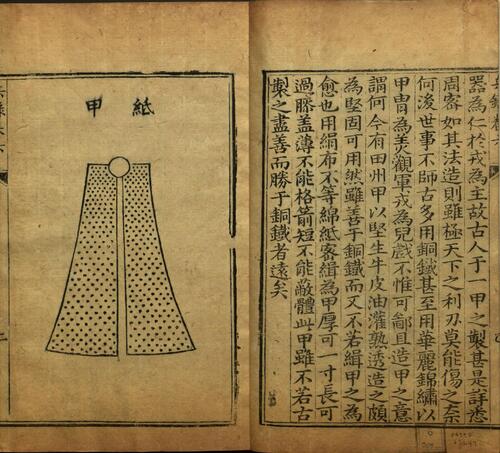 器為仁於戎為主故古人于一甲之製甚是詳悉
周密如其法造則雖極天下之利刃莫能傷之奈
何後世事不師古多用銅鐵甚至用華麗錦繡以
甲冑為美觀軍戎為兒戲不惟可鄙且造甲之意
謂何今有田州甲以堅生牛皮油灌熟透造之頗
為堅固可用然雖善于銅鐵而又不若緝甲之為
愈也用絹布不等綿紙密緝為甲厚可一寸長可
過膝蓋薄不能格箭短不能蔽體此甲雖不若古
製之盡善而勝于銅鐵者遠矣
紙甲